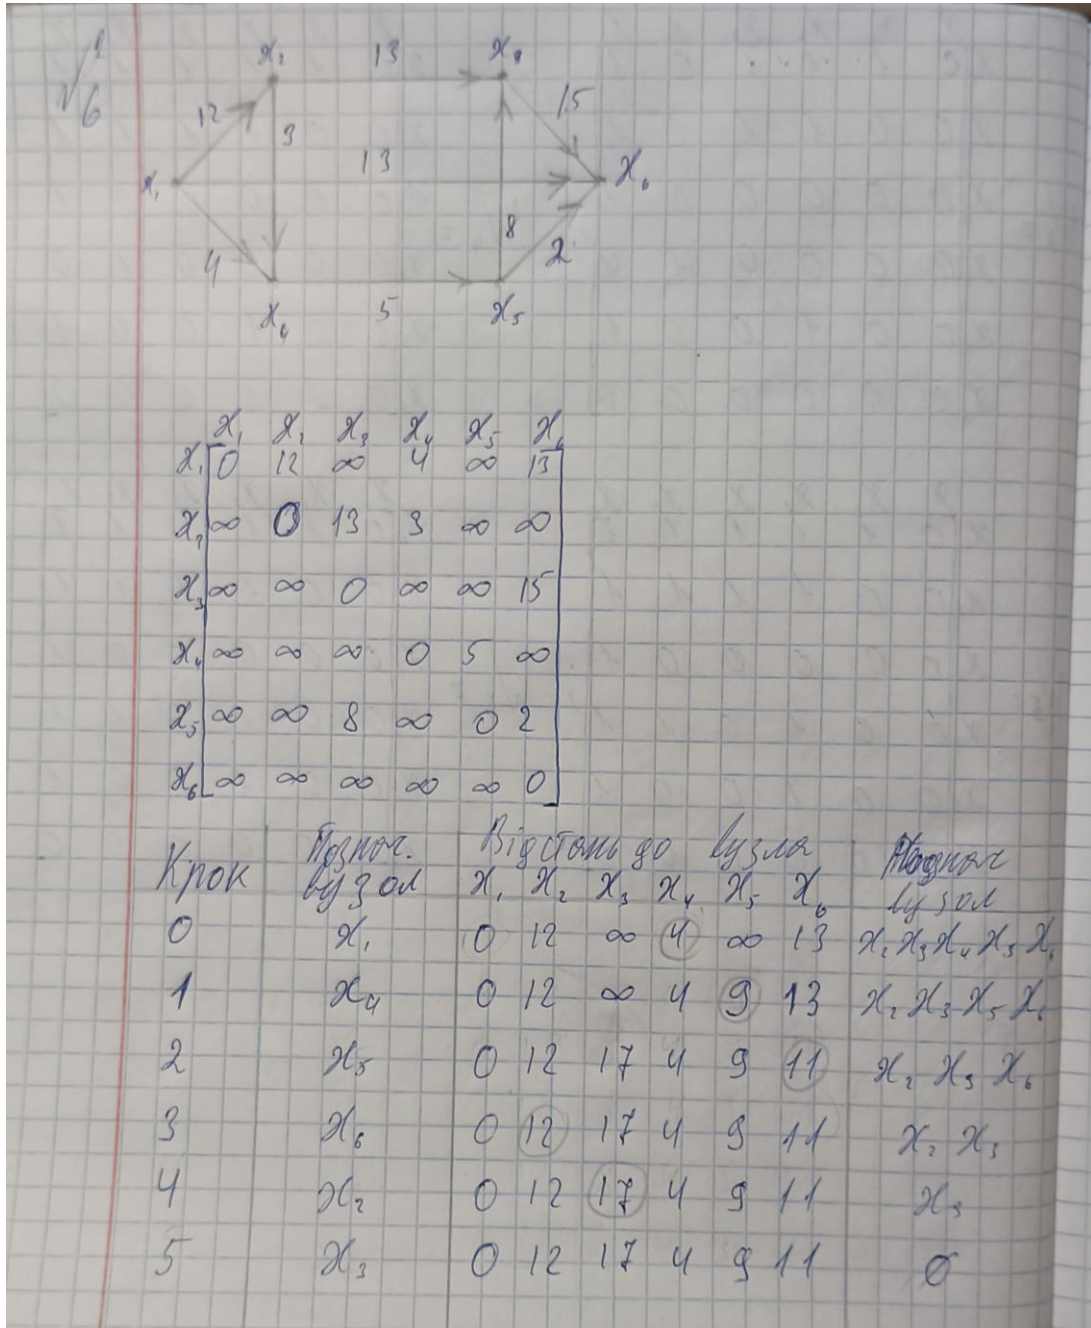 √ 1/6
x₂ 13 x₃
12 3 15
x₁ 13 x₆
4 8 2
x₄ 5 x₅
x₁ x₂ x₃ x₄ x₅ x₆
x₁ 0 12 ∞ 4 ∞ 13
x₂ ∞ 0 13 3 ∞ ∞
x₃ ∞ ∞ 0 ∞ ∞ 15
x₄ ∞ ∞ ∞ 0 5 ∞
x₅ ∞ ∞ 8 ∞ 0 2
x₆ ∞ ∞ ∞ ∞ ∞ 0
Крок Познач. вузол Відстань до вузла вузол
x₁ x₂ x₃ x₄ x₅ x₆
0 x₁ 0 12 ∞ 4 ∞ 13 x₂ x₃ x₄ x₅ x₆
1 x₄ 0 12 ∞ 4 9 13 x₂ x₃ x₅ x₆
2 x₅ 0 12 17 4 9 11 x₂ x₃ x₆
3 x₆ 0 12 17 4 9 11 x₂ x₃
4 x₂ 0 12 17 4 9 11 x₃
5 x₃ 0 12 17 4 9 11 ∅